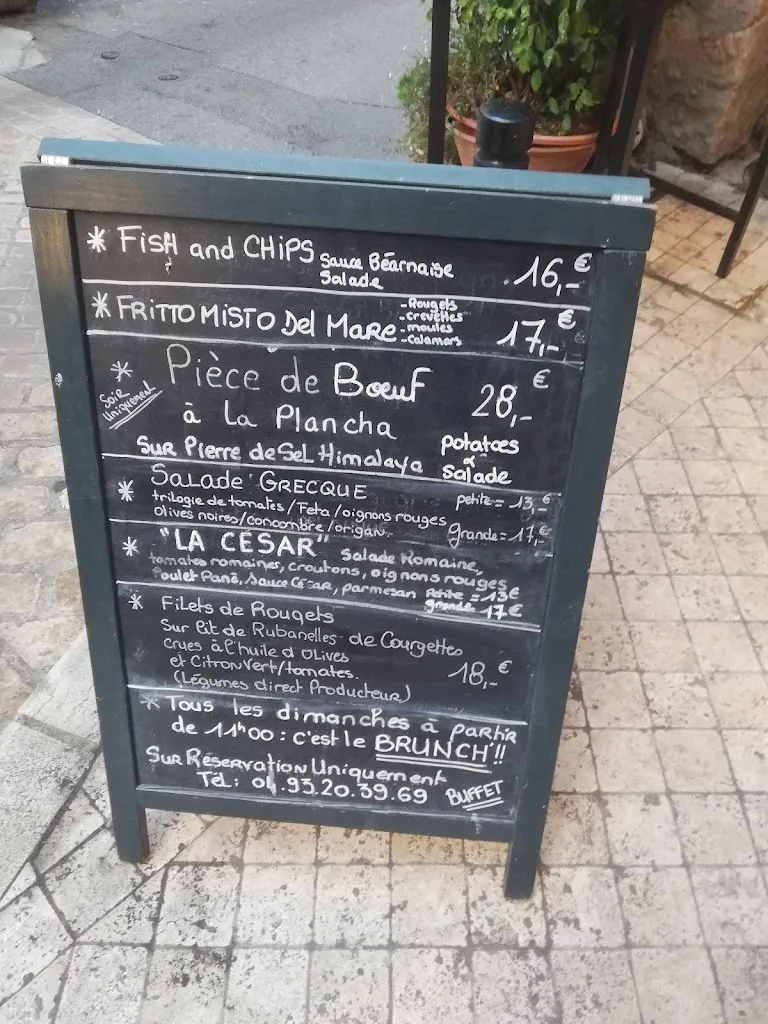 * FISH and CHIPS Sauce Béarnaise Salade 16,-€
* FRITTO MISTO Del MARE -Rougets -crevettes -moules -calamars 17,-€
* Pièce de Bœuf 28,-€
Soir uniquement
à la Plancha
Sur Pierre de Sel Himalaya potatoes & Salade
* SALADE GRECQUE petite = 13,-€
trilogie de tomates/Feta/oignons rouges
olives noires/concombre/origan.. grande=17,-€
* "LA CÉSAR" Salade Romaine,
tomates romaines, croutons, oignons rouges
Poulet Pané, Sauce César, parmesan Petite = 13€
grande 17€
* Filets de Rougets
Sur lit de Rubanelles de Courgettes
crues à l'huile d'OLives
et Citron Vert/tomates. 18,-€
(Légumes direct Producteur)
* Tous les dimanches à partir
de 11h00 : c'est le BRUNCH!!
Sur Réservation Uniquement
Tél: 04.93.20.39.69 BUFFET